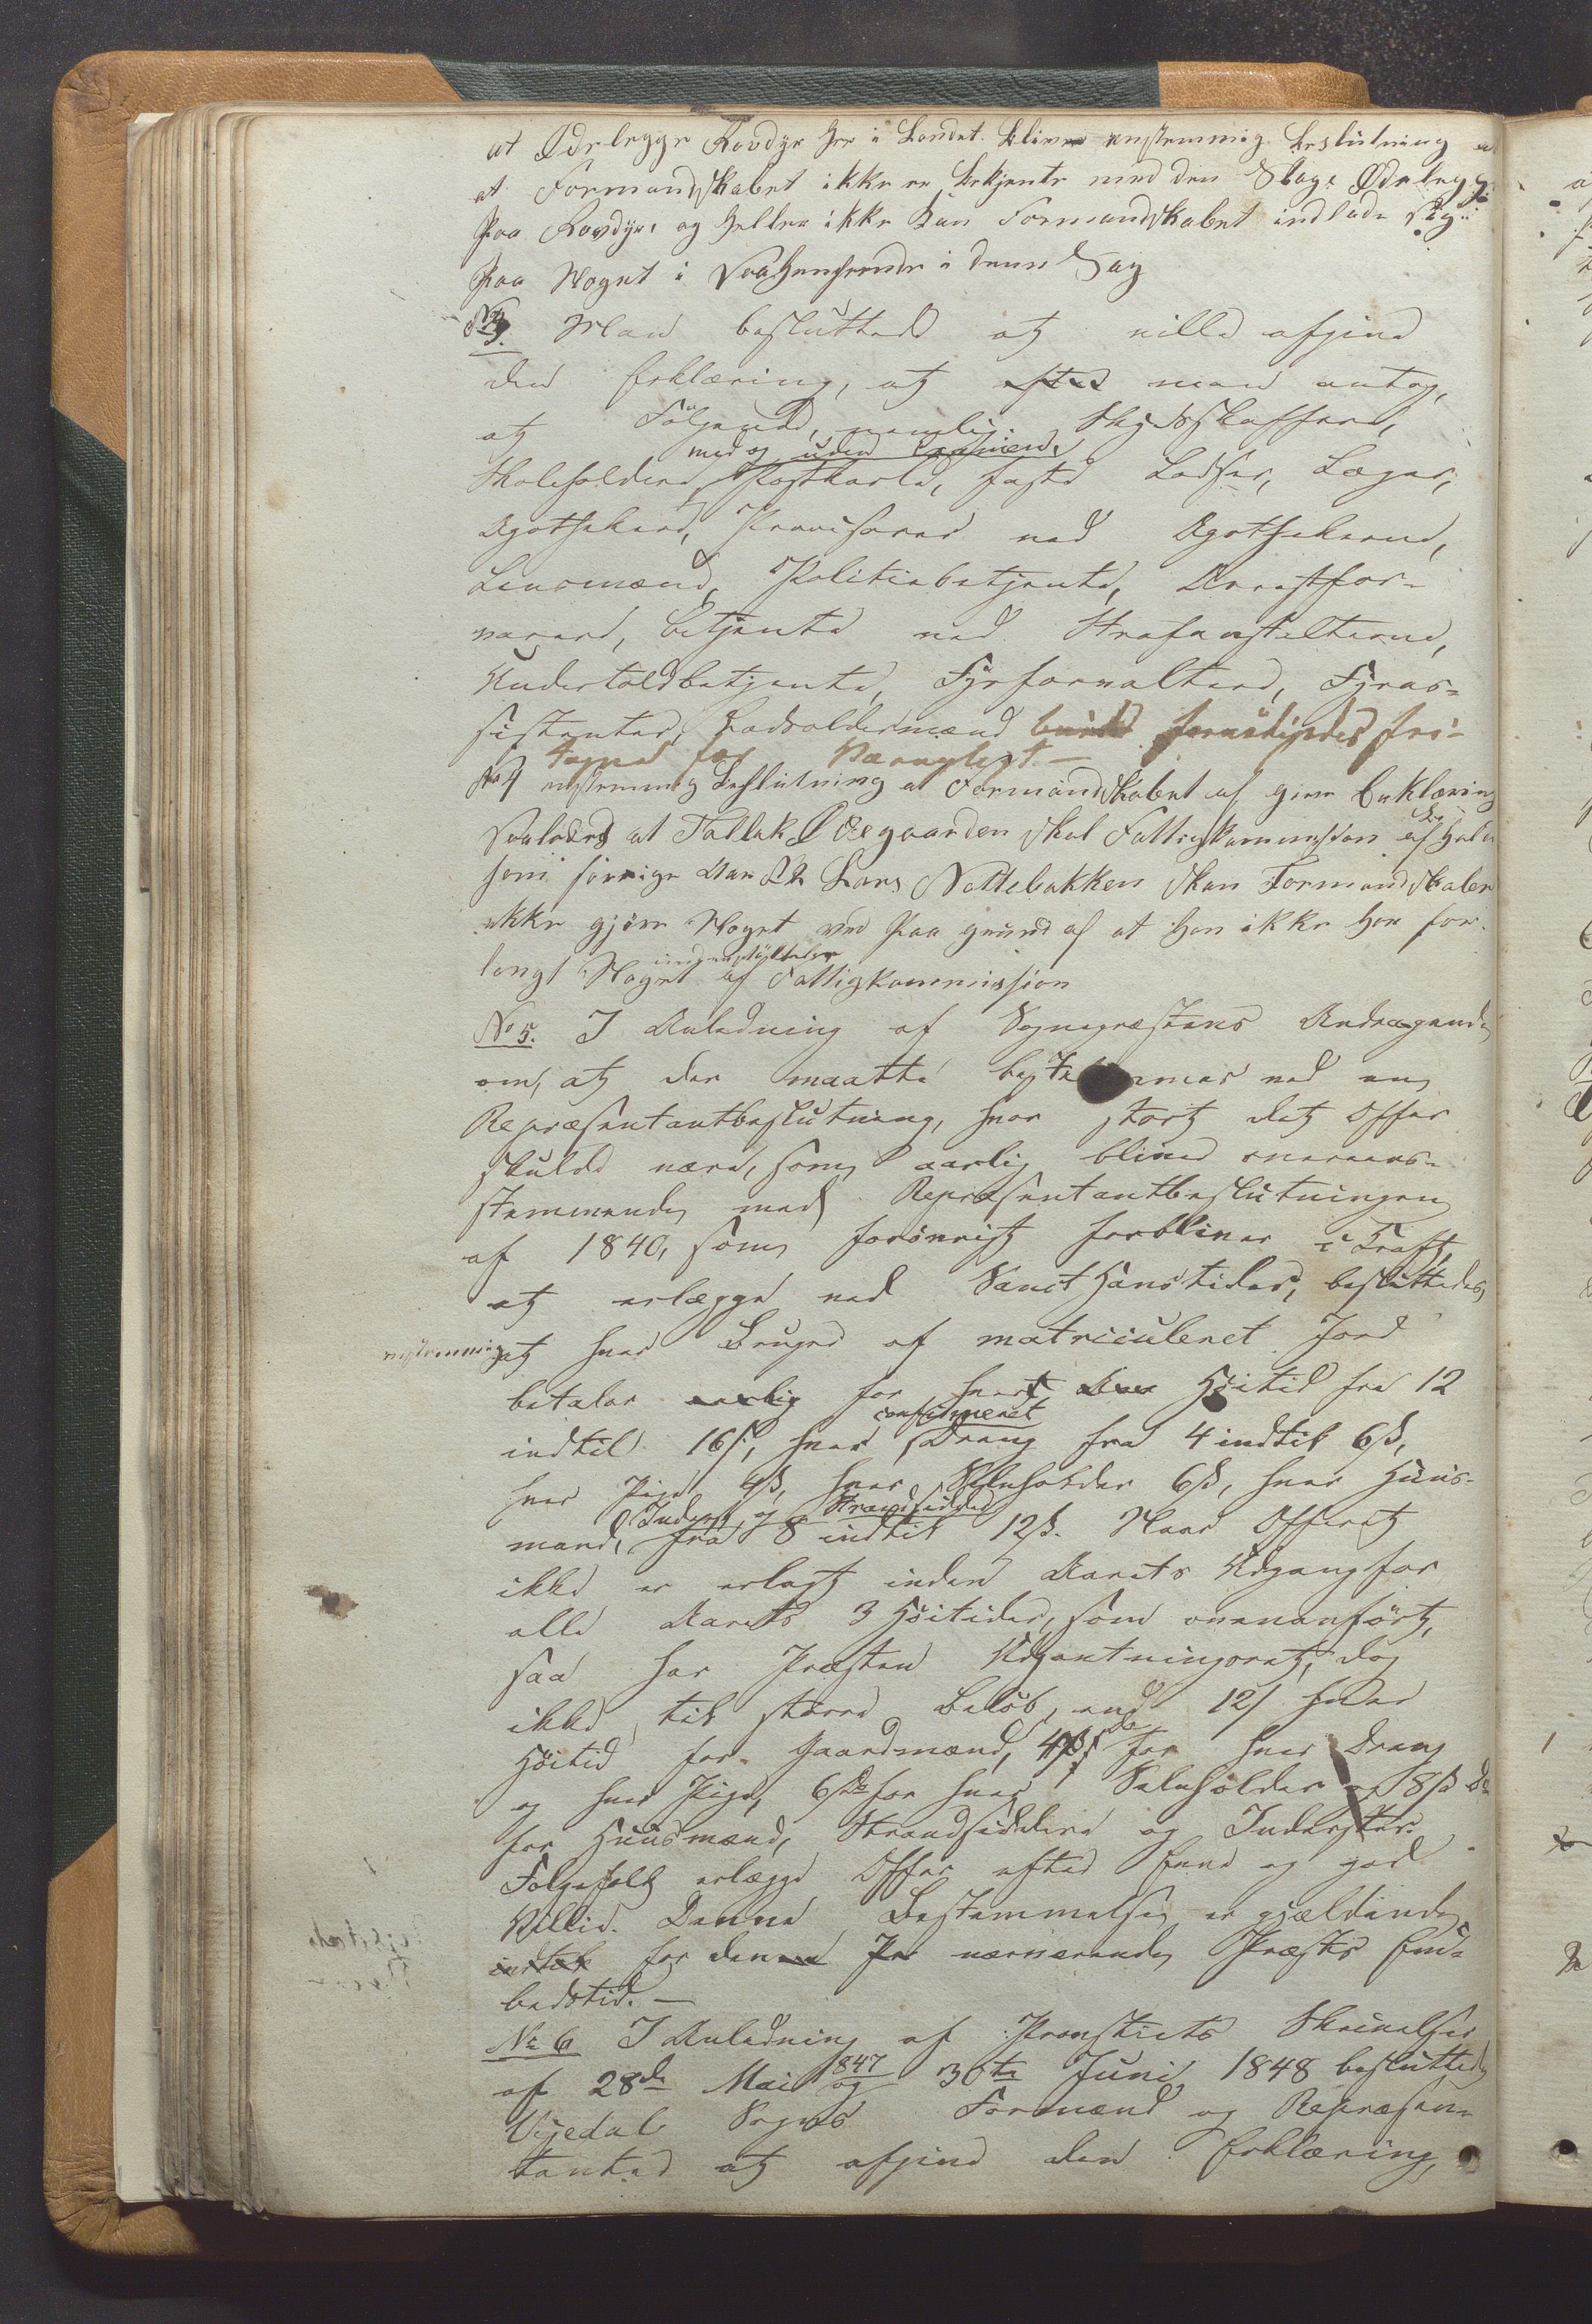 at Ødelegge Rovdyr her i Landet. Bliver enstemmig Beslutning a
at Formandskabet ikke er bekjente med den Slags Ødelegg
paa Rovdyr, og heller ikke kan Formandskabet indlade sig
paa Noget i Saahenseende i denne Sag
No 3. Man besluttede at ville afgive
den Erklæring, at efter man antog,
at Følgende, nemlig: Skydsskaffere,
med og uden Examen
Skoleholdere, Postkarle, faste Lodser, Læger,
Apothekere, Provisorer ved Apothekerne,
Lensmænd, Politiebetjente, Arrestfor-
varere, Betjente ved Strafanstalterne,
Undertoldbetjente, Fyrforvaltere, Fyras-
sistenter, Lodsoldermænd burde fornødigedes fri-
tagne for Værnepligt. —
No 4 enstemmig Beslutning at Formandskabet af giver Erklæring
Saaledes at Tallak Øegaarden skal Fattigkommission af holde
som forrige Aar Lars Nottebakken kan Formandskabet
ikke gjøre Noget ved paa grund af at han ikke har for-
langt Noget af Fattigkommission
No 5. I Anledning af Sognepræstens Andragende
om, at der maatte bestemmes ved en
Repræsentantbeslutning, hvor stort det Offer
skulde være, som aarlig blive overeens-
stemmende med Repræsentantbeslutningen
af 1840, som forøvrigt forbliver i Kraft,
at erlægge ved Sanct Hanstider, besluttedes,
enstemmig at hver Bruger af matriculeret Jord
betaler aarlig for hver Høitid fra 12
indtil 16 ß, hver confirmeret Dreng fra 4 indtil 6 ß,
hver Pige 4 ß, hver Selvholder 6 ß, hver Huus-
Inderst og Strandsidder
mand, fra 8 indtil 12 ß. Naar Offeret
ikke er erlagt inden Aarets Udgang for
alle Aarets 3 Høitider, som ovenanført,
saa har Præsten Udpantningsret, dog
ikke til større Beløb, end 12 ß hver
Høitid for Gaardmænd, 4 ß for hver Dreng
og hver Pige, 6 ß for hver Selvholder og 8 ß Do
for Huusmænd, Strandsiddere og Inderster.
Folgefolk erlægge Offer efter Evne og god
Villie. Denne Bestemmelse er gjældende
indtil for den nærværende Præsts Em-
bedstid. —
No 6 I Anledning af Provstiets Skrivelser
af 28de Mai 1847 og 30te Juni 1848 besluttede
Vigedal Sogns Formænd og Repræsen-
tanter at afgive den Erklæring,